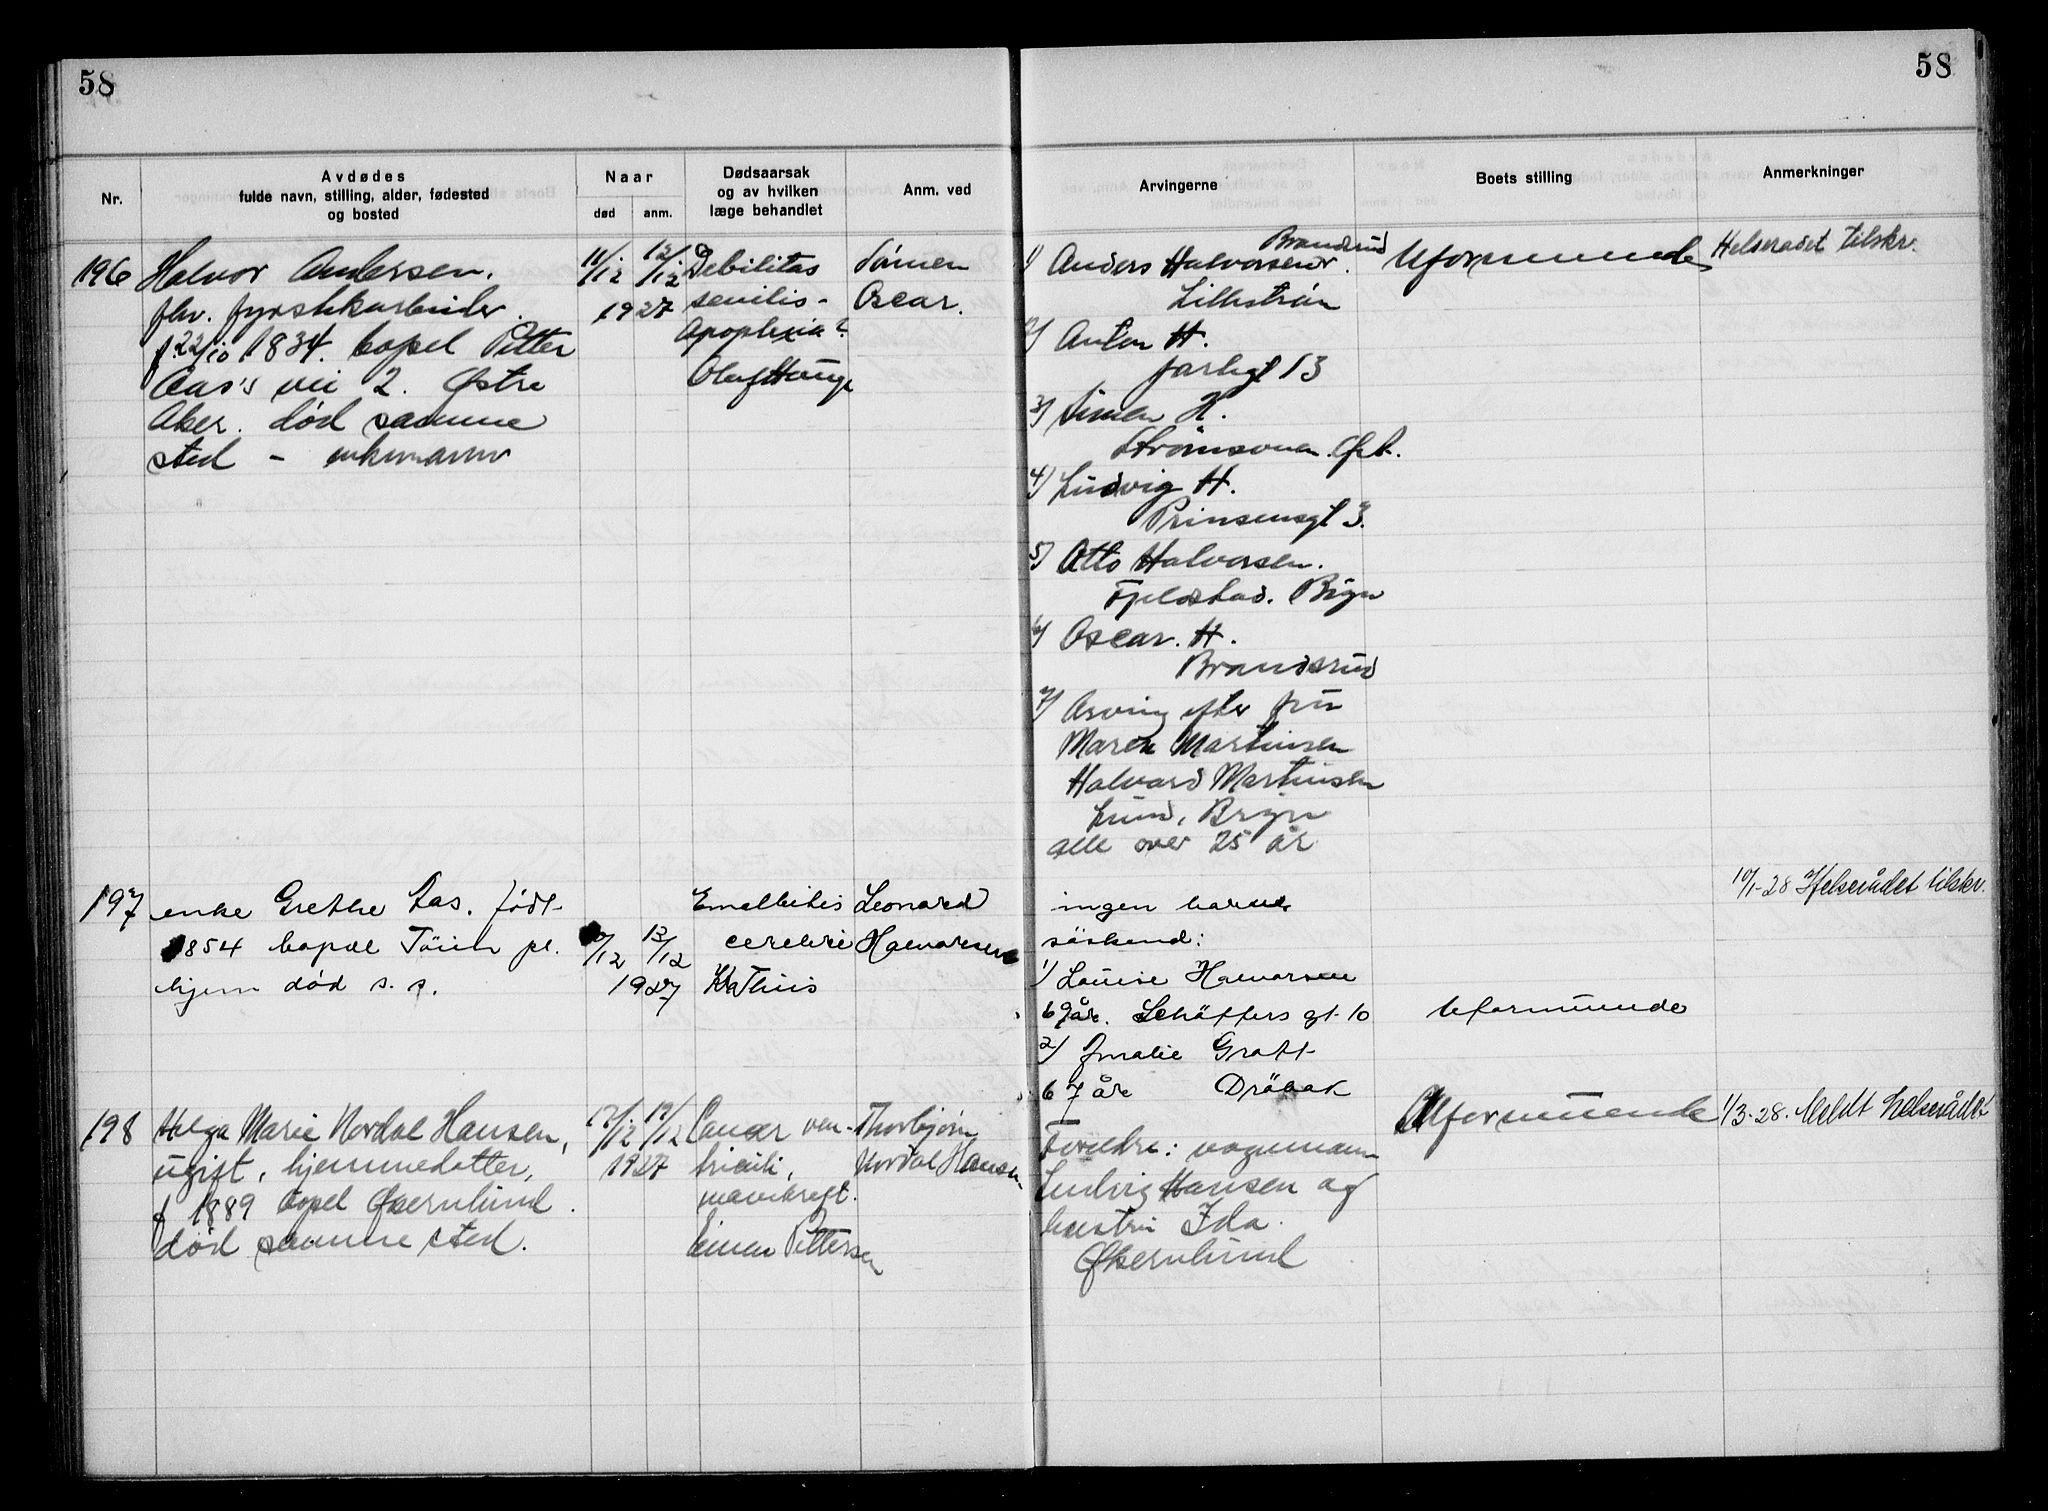 58
58
Nr.
Avdødes
fulde navn, stilling, alder, fødested
og bosted
Naar
død
anm.
Dødsaarsak
og av hvilken
læge behandlet
Anm. ved
Arvingerne
Boets stilling
Anmerkninger
196
Halvor Andersen.
fhv. fyrstikkarbeider.
f. 22/10 1834. bopel Petter
Aas's vei 2. Østre
Aker. død samme
sted - enkemann
11/12
12/12
1927
Debilitas
senilis -
Apoplexia?
Olaf Hauge
Sønnen
Oscar.
1) Anders Halvorsen Brandsrud.
Lillestrøm
2) Anton H.
Jarlsgt 13
3) Simen H.
Strömsveien. Øst.
4) Ludvig H.
Prinsensgt 3.
5) Otto Halvorsen.
Fjeldstad. Bryn
6) Oscar. H.
Brandsrud
7) Arving efter fru
Maren Martinsen
Halvard Martinsen
Lund, Bryn
alle over 25 år
Uformuende
Helseradet tilskr.
197
enke Grethe Aas. født
1854 bopæl Töien pl.
hjem død s. s.
/12
13/12
1927
cerebri
Leonard
Halvorsen
ingen barn
söskend:
1) Louise Halvorsen
69 år. Schäffers gt. 10
2) Amalie Grott
67 år Dröbak
Uformuende
10/1-28 Helserådet tilskr.
198
Helga Marie Nordal Hansen,
ugift, hjemmedatter,
f 1889 bopel Økernlund.
død samme sted.
17/12
19/12
1927
Cancer ven-
triculi,
mavekreft.
Einar Pettersen
Thorbjørn
Nordal Hansen
Foreldre: vognmann
Ludvig Hansen og
hustru Ida.
Økernlund
Uformuende
1/3-28. Meldt helserådet